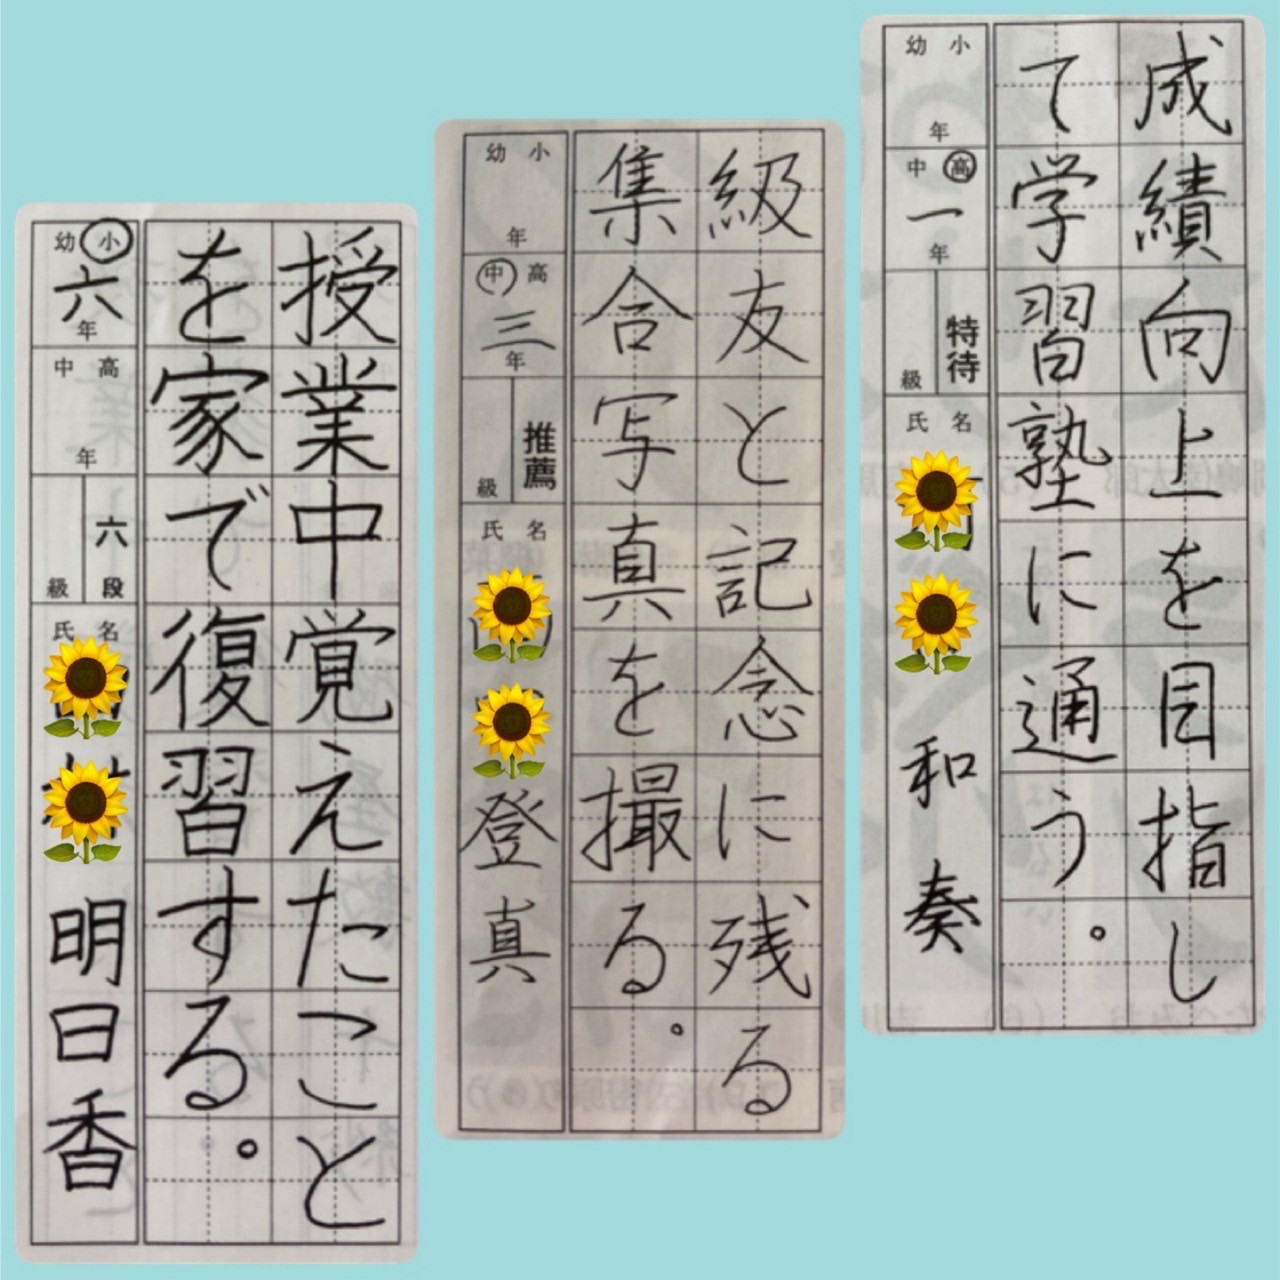 成績向上を目指し
て学習塾に通う。
幼 小
年
中 高
一
年
特待
級
氏 名
和奏
級友と記念に残る
集合写真を撮る。
幼 小
年
中 高
三
年
推薦
級
氏 名
登真
授業中覚えたこと
を家で復習する。
幼 小
六
年
中 高
年
六段
級
氏 名
明日香